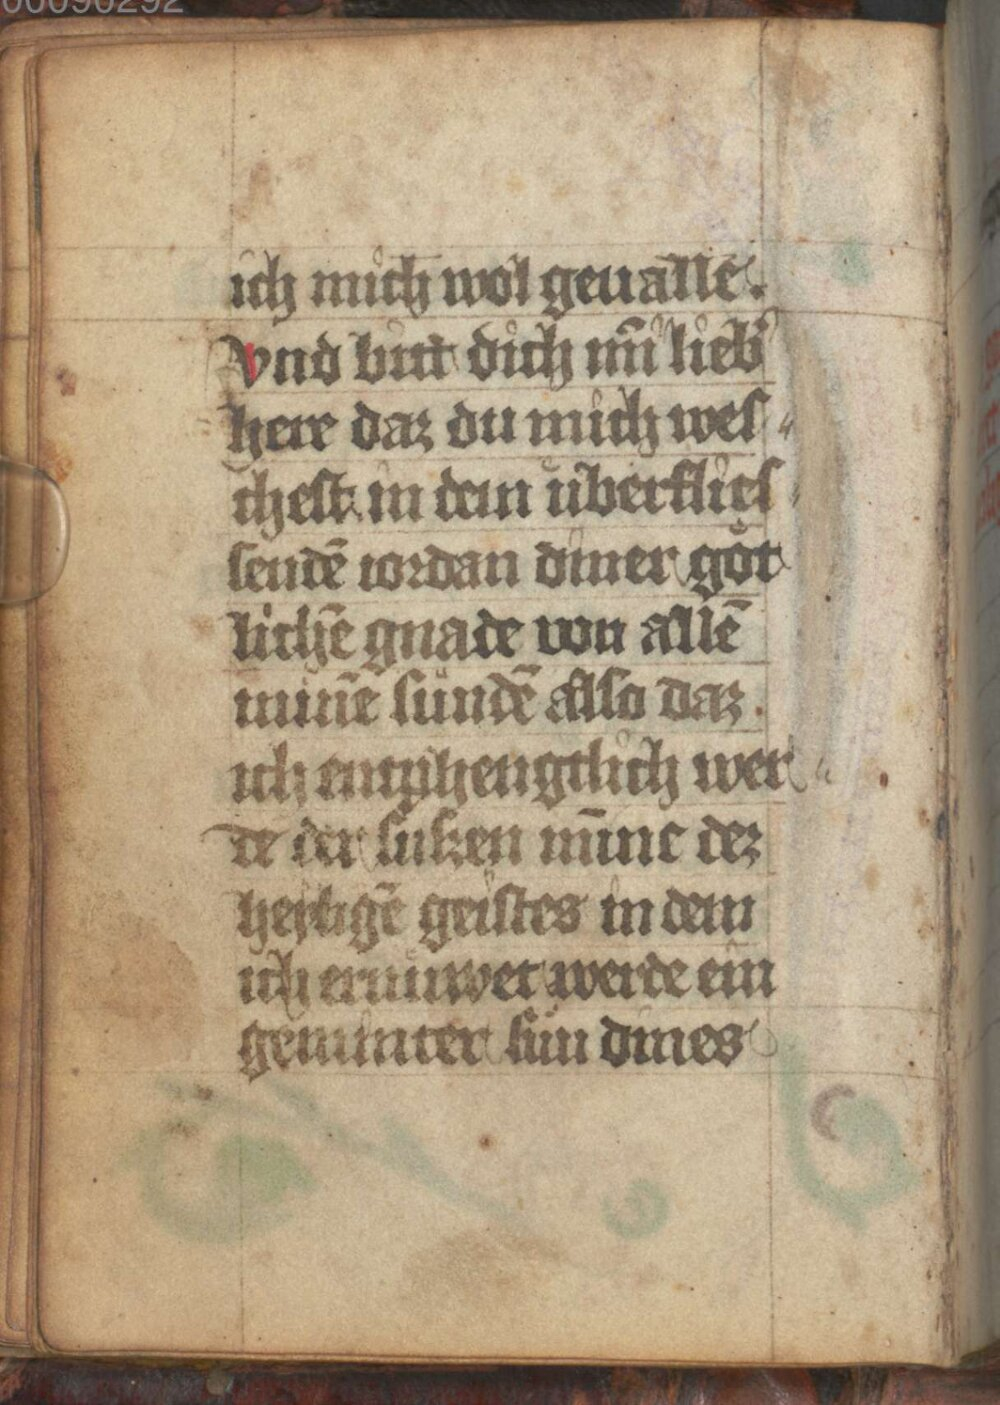 00090292
ich mich wol geuallē.
Vnd bitt dich mī lieb̾
here daz du mich wes
chest in dem überflies
sendē iordan diner göt
lichē gnade von allē
minē sündē also daz.
ich emphengklich wer
de der süszen minne dez
heyligē geistes in dem
ich erniuwet werde ein
geminter sun dines